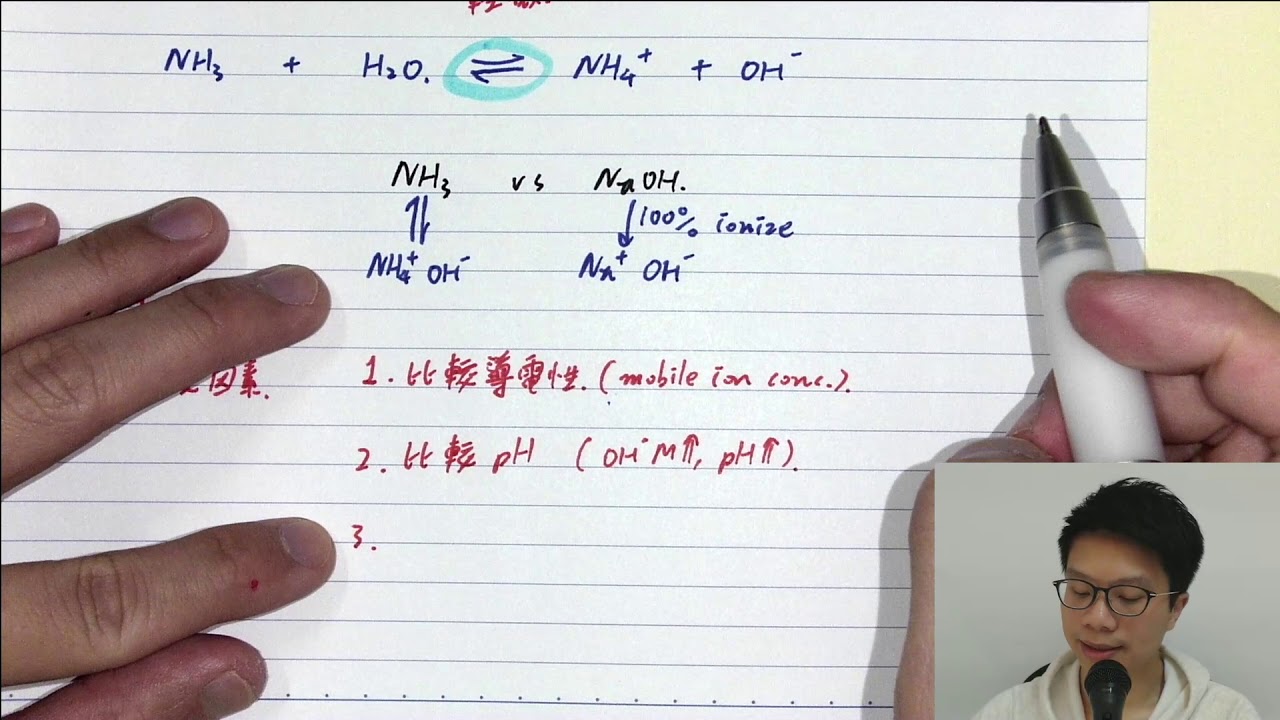 NH₃ + H₂O. ⇌ NH₄⁺ + OH⁻
NH₃ vs NaOH.
⇌ ↓ 100% ionize
NH₄⁺ OH⁻ Na⁺ OH⁻
因素.
1. 比較導電性. (mobile ion conc.).
2. 比較 pH (OH⁻ M↑, pH↑).
3.